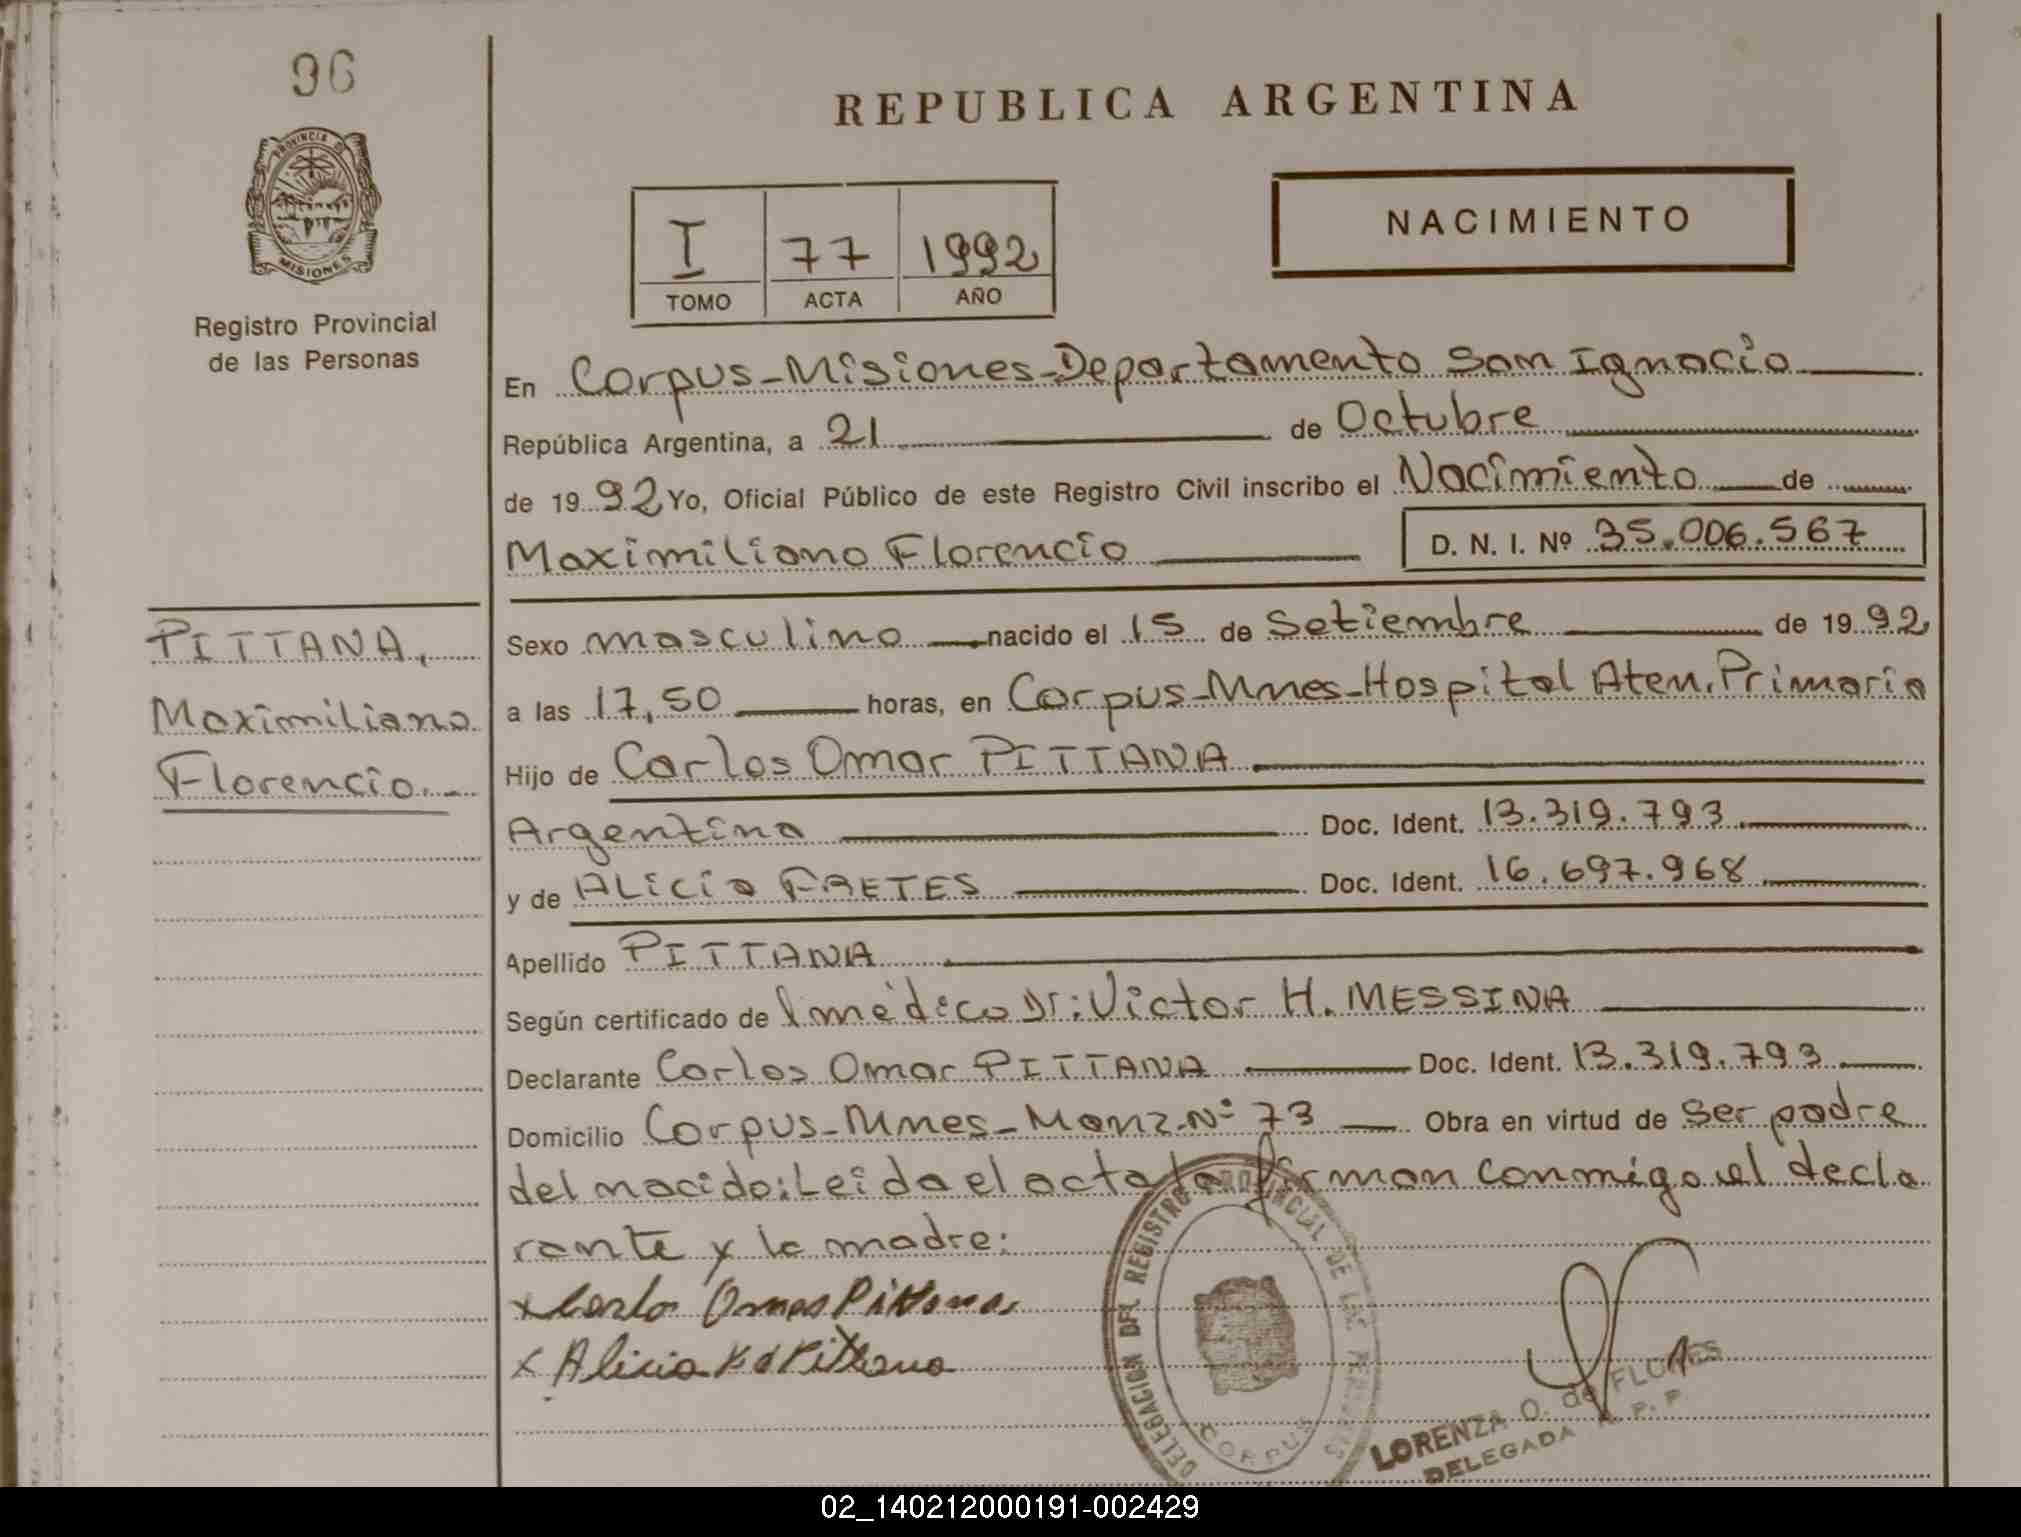 96
PROVINCIA DE
MISIONES
Registro Provincial
de las Personas
REPUBLICA ARGENTINA
I 77 1992
TOMO ACTA AÑO
NACIMIENTO
En Corpus-Misiones-Departamento San Ignacio
República Argentina, a 21 de Octubre
de 1992 Yo, Oficial Público de este Registro Civil inscribo el Nacimiento de
Maximiliano Florencio D. N. I. Nº 35.006.567
PITTANA,
Maximiliano
Florencio.-
Sexo masculino nacido el 15 de Setiembre de 1992
a las 17,50 horas, en Corpus-Mnes-Hospital Aten. Primaria
Hijo de Carlos Omar PITTANA
Argentina Doc. Ident. 13.319.793
y de Alicia FRETES Doc. Ident. 16.697.968
Apellido PITTANA
Según certificado de l médico Dr: Victor H. MESSINA
Declarante Carlos Omar PITTANA Doc. Ident. 13.319.793
Domicilio Corpus-Mnes-Manz-Nº 73 Obra en virtud de ser padre
del nacido: Leida el acta la firman conmigo el decla
rante y la madre:
x Carlos Omar Pittana
x Alicia F. d Pittana
DELEGACION DEL REGISTRO PROVINCIAL DE LAS PERSONAS
CORPUS
LORENZA O. de FLORES
DELEGADA R. P. P.
02_140212000191-002429